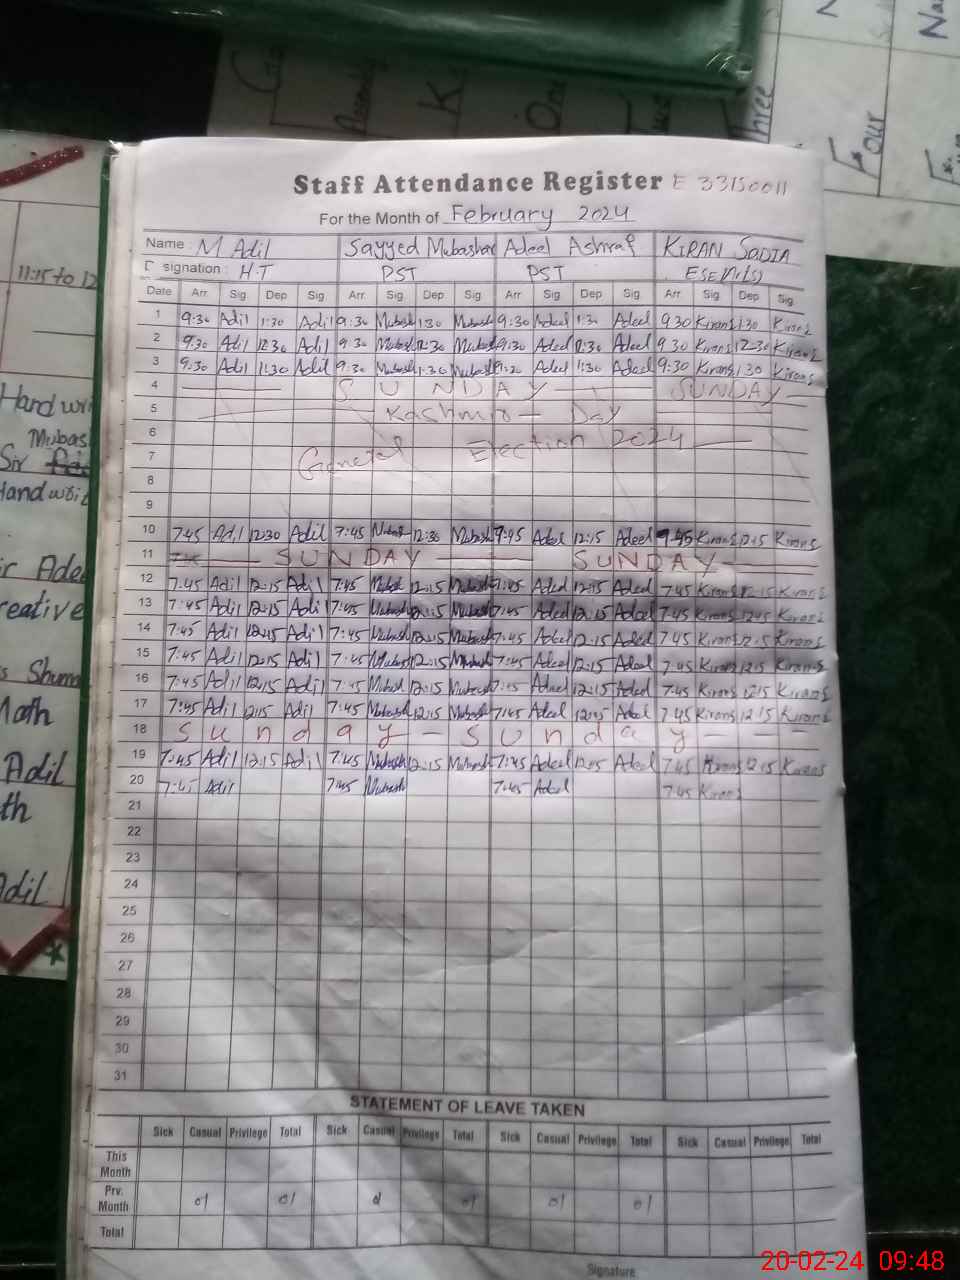 Three
Four
Staff Attendance Register E 33150011
For the Month of February 2024
Name : M Adil Sayyed Mubashar Adeel Ashraf KIRAN SADIA
signation : H.T PST PST
Date Arr. Sig Dep Sig Arr. Sig. Dep Sig. Arr Sig. Dep Sig. Arr Sig. Dep Sig.
1 9:30 Adil 1:30 Adil 9:30 Mubash 1:30 Mubash 9:30 Adeel 1:3 Adeel 9 30 Kirans 1:30 Kirans
2 9:30 Adil 12:30 Adil 9 30 Mubash 12:30 Mubash 9:30 Adeel 12:30 Adeel 9 30 Kirans 12:30 Kirans
3 9:30 Adil 11:30 Adil 9:30 Mubash 1:30 Mubash Adeel 1:30 Adeel 9:30 Kirans 1 30 Kirans
4 SUNDAY SUNDAY
5 Kashmir Day
6
7 General Election 2024
8
9
10 7:45 Adil 12:30 Adil 7:45 12:30 Mubash 7:45 Adeel 12:15 Adeel 7:45 Kirans 12:15 Kirans
11 SUNDAY SUNDAY
12 7:45 Adil 12:15 Adil 7:45 Mubash 12:15 Mubash 7:45 Adeel 12:15 Adeel 7:45 Kirans 12:15 Kirans
13 7:45 Adil 12:15 Adil 7:45 Mubash 12:15 Mubash 7:45 Adeel 12:15 Adeel 7:45 Kirans Kirans
14 7:45 Adil 12:15 Adil 7:45 Mubash 12:15 Mubash 7:45 Adeel 12:15 Adeel 7:45 Kirans 12:15 Kirans
15 7:45 Adil 12:15 Adil 7:45 Mubash 12:15 Mubash 7:45 Adeel 12:15 Adeel 7:45 Kirans 12:15 Kirans
16 7:45 Adil 12:15 Adil 7:45 Mubash 12:15 Mubash 7:45 Adeel 12:15 Adeel 7:45 Kirans 12:15 Kirans
17 7:45 Adil 12:15 Adil 7:45 Mubash 12:15 Mubash 7:45 Adeel 12:15 Adeel 7:45 Kirans 12:15 Kirans
18 Sunday - Sunday
19 7:45 Adil 12:15 Adil 7:45 Mubash 12:15 Mubash 7:45 Adeel 12:15 Adeel 7:45 Kirans 12:15 Kirans
20 7:45 Adil 7:45 Mubash 7:45 Adeel 7:45 Kirans
21
22
23
24
25
26
27
28
29
30
31
STATEMENT OF LEAVE TAKEN
Sick Casual Privilege Total Sick Casual Privilege Total Sick Casual Privilege Total Sick Casual Privilege Total
This Month
Prv. Month 01 01 01 01 01
Total
Signature
11:15 to 12
Hand wri
Mubas
Sir
Handwrit
ir Adee
reative
s Shum
Math
Adil
th
Adil
20-02-24 09:48